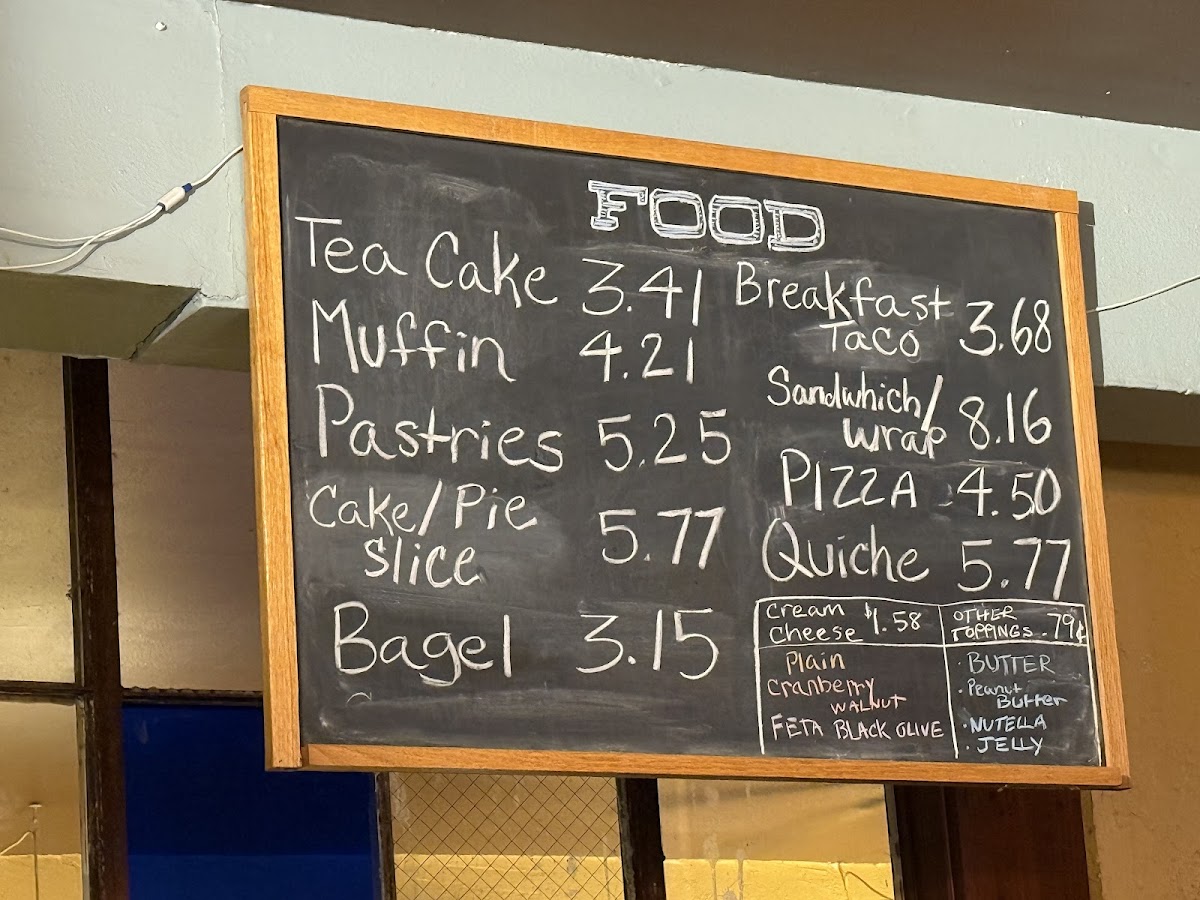 FOOD
Tea Cake 3.41
Muffin 4.21
Pastries 5.25
Cake/Pie
slice 5.77
Bagel 3.15
Breakfast
Taco 3.68
Sandwhich/
wrap 8.16
PIZZA 4.50
Quiche 5.77
cream
cheese $1.58
Plain
cranberry
WALNUT
FETA BLACK OLIVE
OTHER
TOPPINGS .79¢
· BUTTER
· Peanut
Butter
· NUTELLA
· JELLY